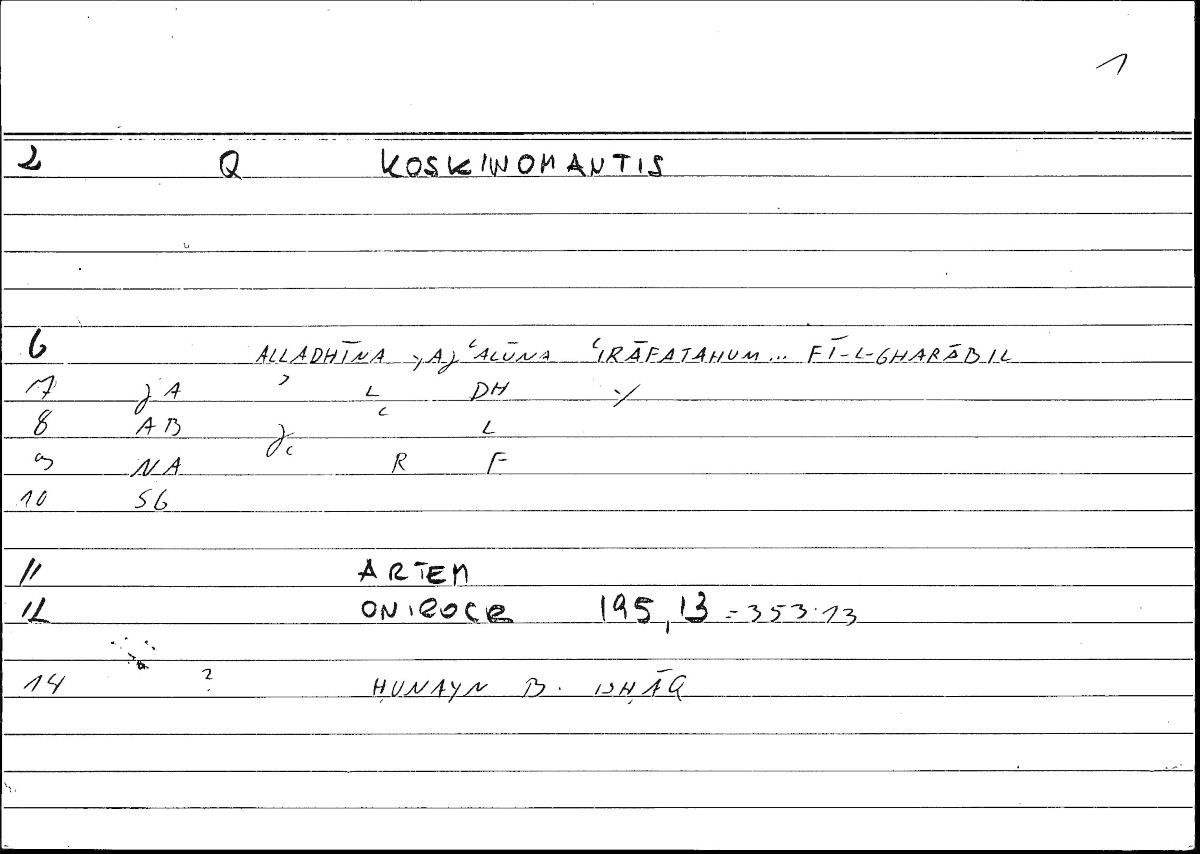 1
2 Q KOSKINOMANTIS
6 ALLADHĪNA YAJʿALŪNA ʿIRĀFATAHUM... FĪ-L-GHARĀBIL
7 JA ʾ L DH ./
8 AB Jʿ ʿ L
9 NA R F
10 SG
11 ARTEM
12 ONIROCR 195,13 = 353.13
14 ? ḤUNAYN B. ISḤĀQ